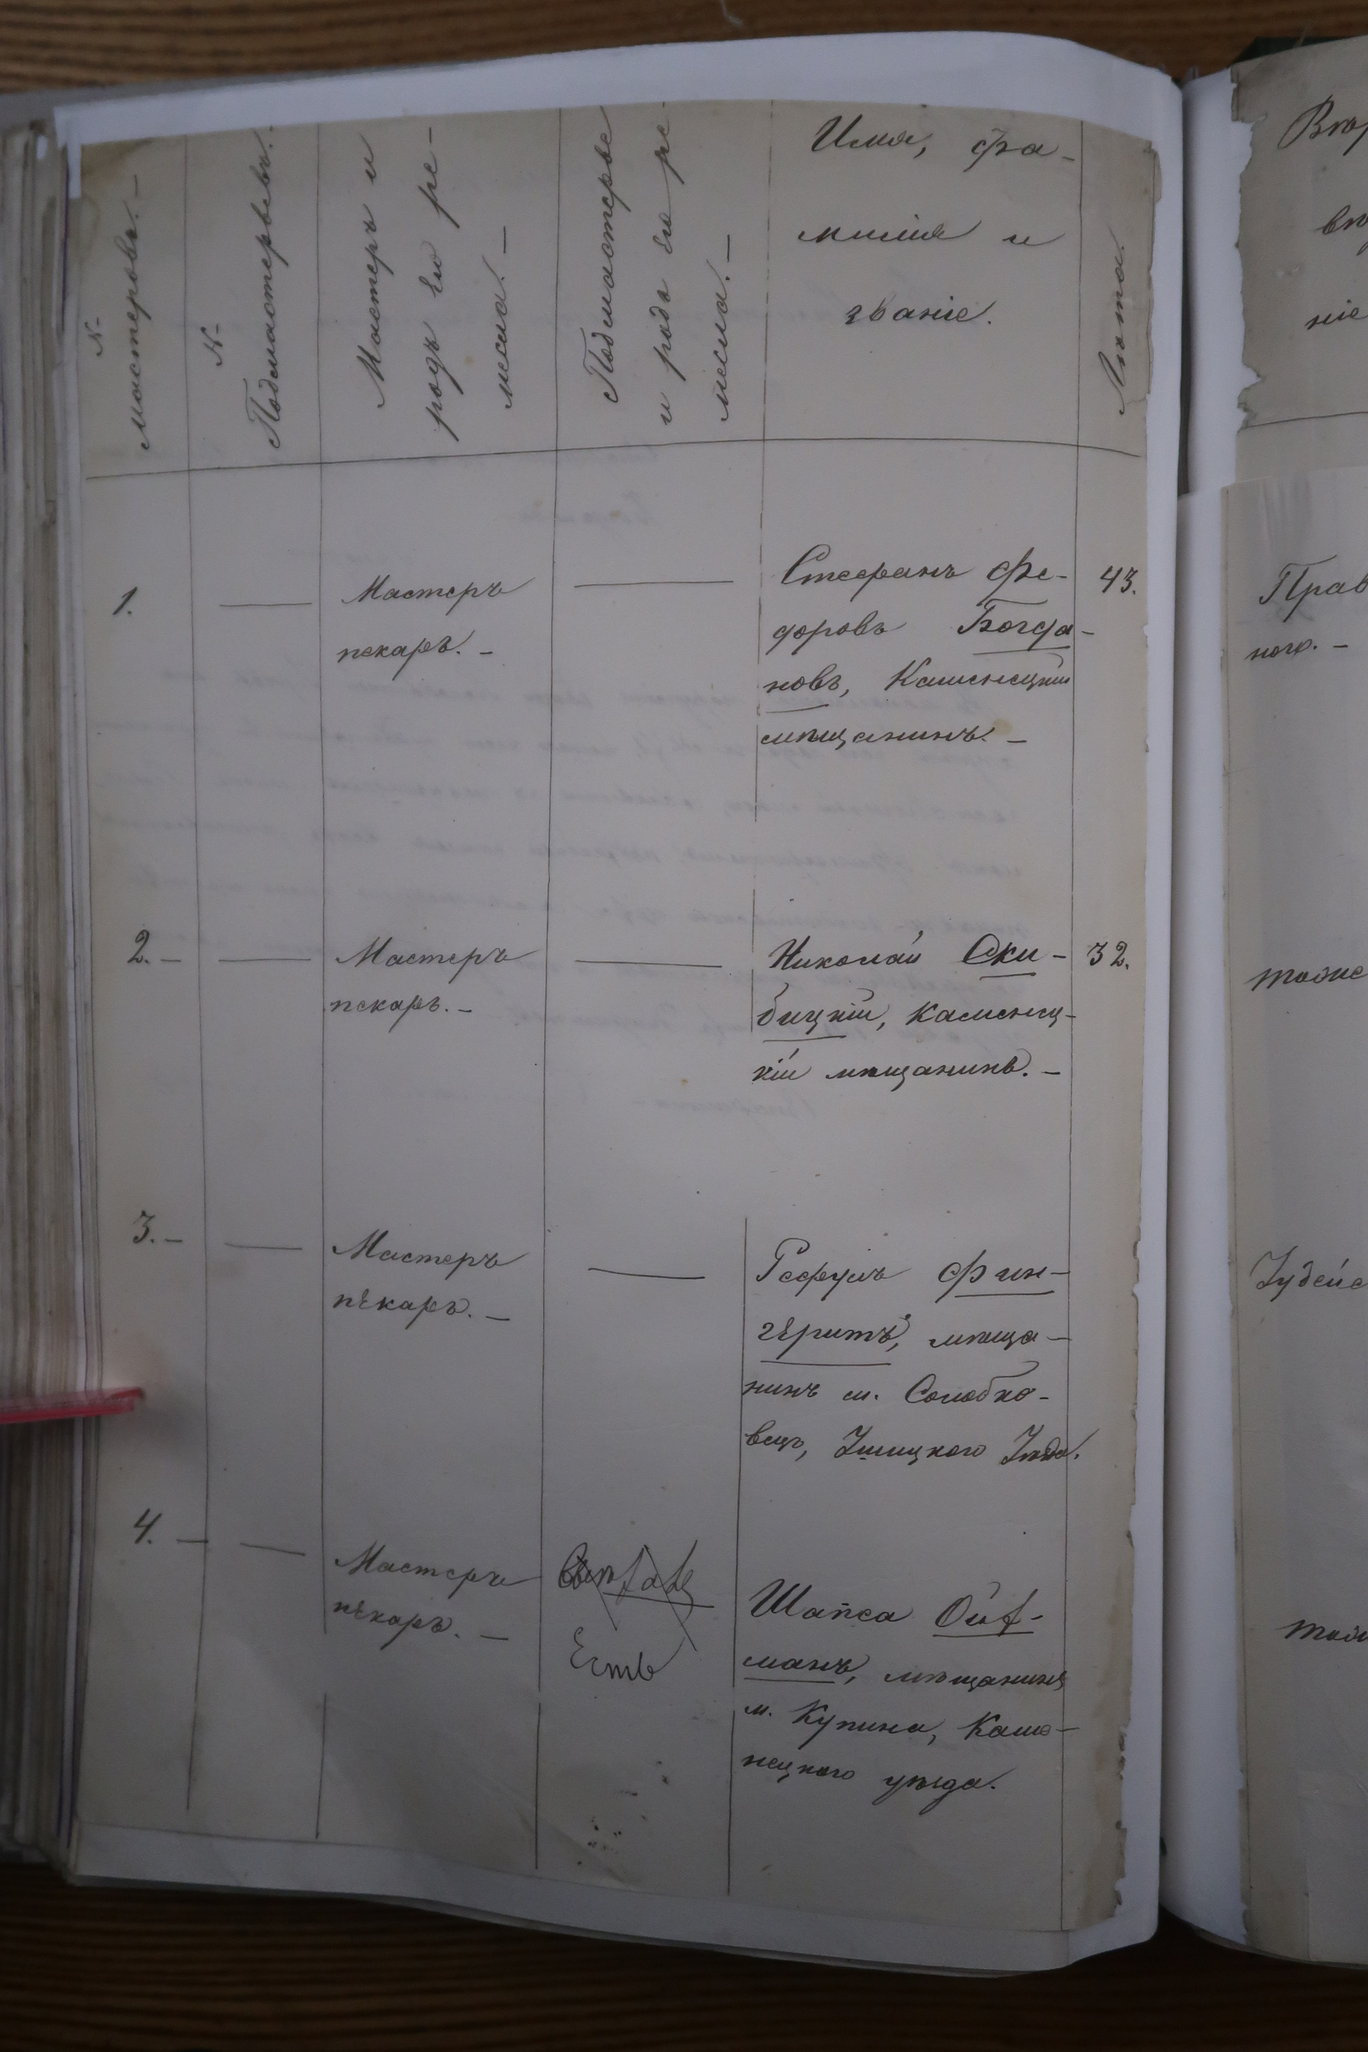 №
мастеровъ. –
№
Подмастерьевъ.
Мастеръ и
родъ его ре-
месла. –
Подмастерье
и родъ его ре
месла. –
Имя, фа-
милія и
званіе.
Лѣта.
1.
Мастеръ
пекарь. –
Стефанъ Фе-
доровъ Богда-
новъ, Каменецкій
мѣщанинъ. –
43.
2. –
Мастеръ
пекарь. –
Николай Ски-
бицкій, Каменец-
кій мѣщанинъ. –
32.
3. –
Мастеръ
пекарь. –
Рефулъ Фин-
геритъ, мѣща-
нинъ м. Солобко-
вецъ, Ушицкого Уѣзда.
4. –
Мастеръ
пекарь. –
Есть
Шапса Ойф-
манъ, мѣщанинъ
м. Купина, Каме-
нецкого уѣзда.
Втор
ніе
Прав
ного. –
тоже
Іудейс